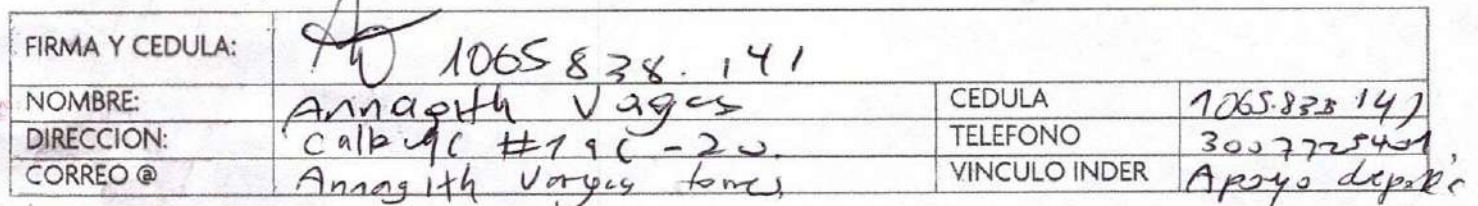 FIRMA Y CEDULA: 1065838.141
NOMBRE: Annagith Vages CEDULA 1065.838 141
DIRECCION: Calle #19C-20. TELEFONO 3007725401
CORREO @ Annagith Vargas torres VINCULO INDER Apoyo